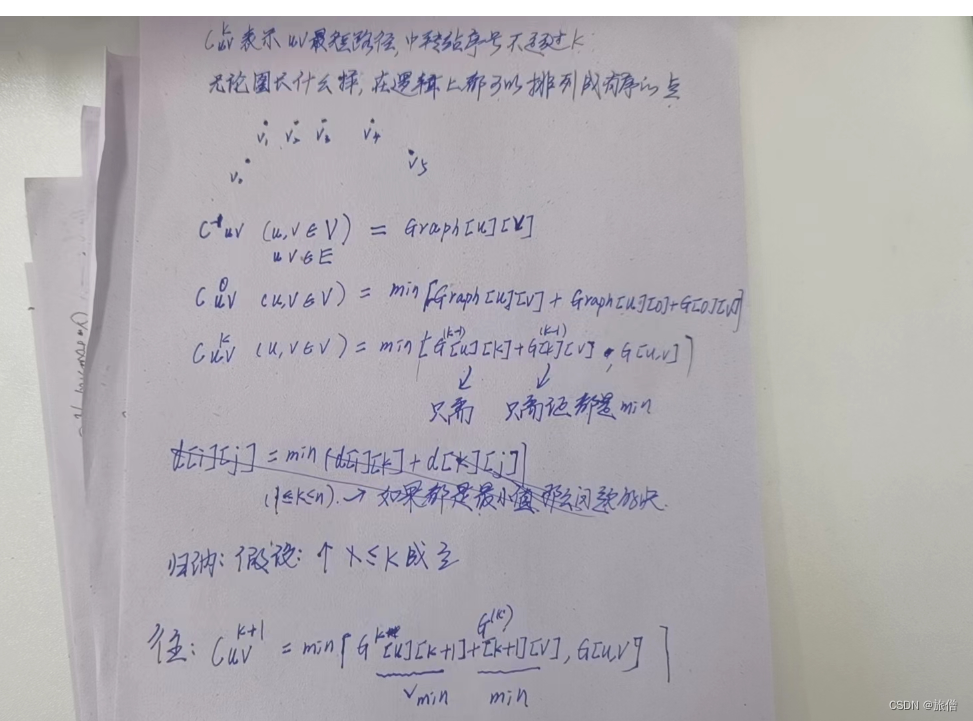 C^k uv 表示 uv最短路径,中转站序号不超过k
无论图长什么样,在逻辑上都可以排列成有序的点
V₁ V₂ V₃ V₄
V₀ V₅
C^-1 uv (u,v∈V) = Graph[u][v]
uv∈E
C^0 uv (u,v∈V) = min[Graph[u][v] + Graph[u][0]+G[0][v]]
C^k uv (u,v∈V) = min[G^(k-1)[u][k]+G^(k-1)[k][v], G[u,v]]
只需 只需证都是min
d[i][j] = min(d[i][k] + d[k][j])
(1≤k≤n). → 如果都是最小值那么问题解决.
归纳: 假设: 个 x≤k成立
往: C^k+1 uv = min[G^k[u][k+1]+G^(k)[k+1][v], G[u,v]]
min min
CSDN @旅僧